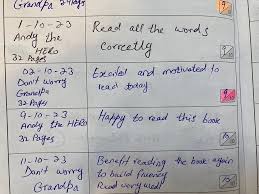 Grandpa 24 Pages
1-10-23
Andy the
HERO
32 Pages
Read all the words
correctly
9
02-10-23
Don't worry
Grandpa
32 Pages
Excited and motivated to
read today
9
9-10-23
Andy the HERO
32 Pages
Happy to read this book
11-10-23
Don't worry
Grandpa
Benefit reading the book again
to build fluency
Read very well